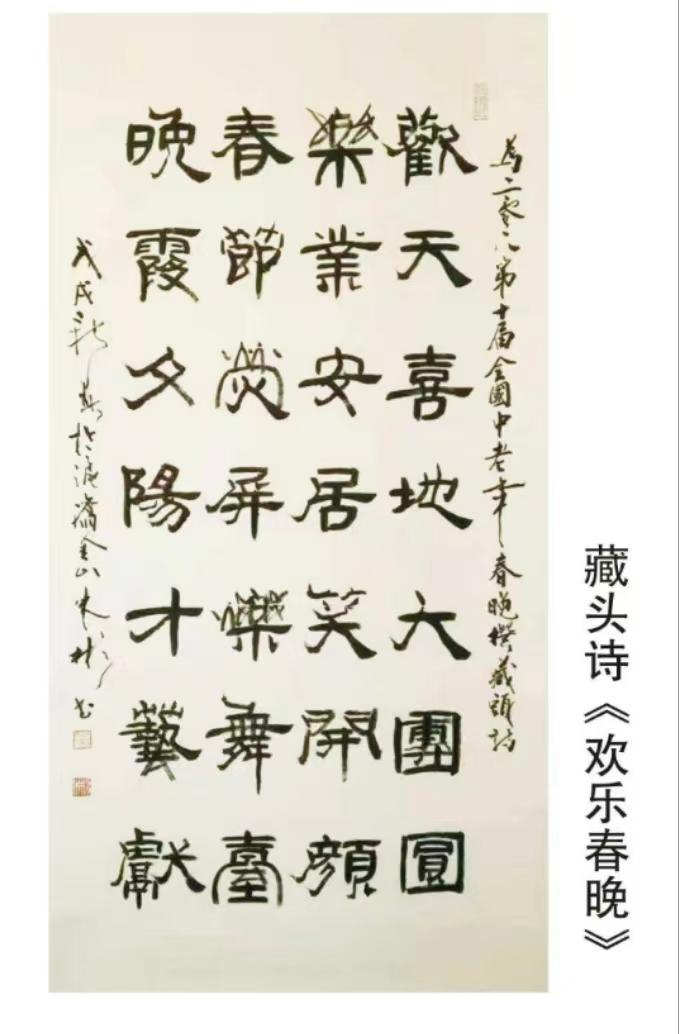 藏头诗《欢乐春晚》
為二零一八第十届全國中老年春晚撰藏頭詩
歡天喜地大團圓
樂業安居笑開顏
春節熒屏爍舞臺
晚霞夕陽才藝獻
戊戌新春於滬金山朱彬書